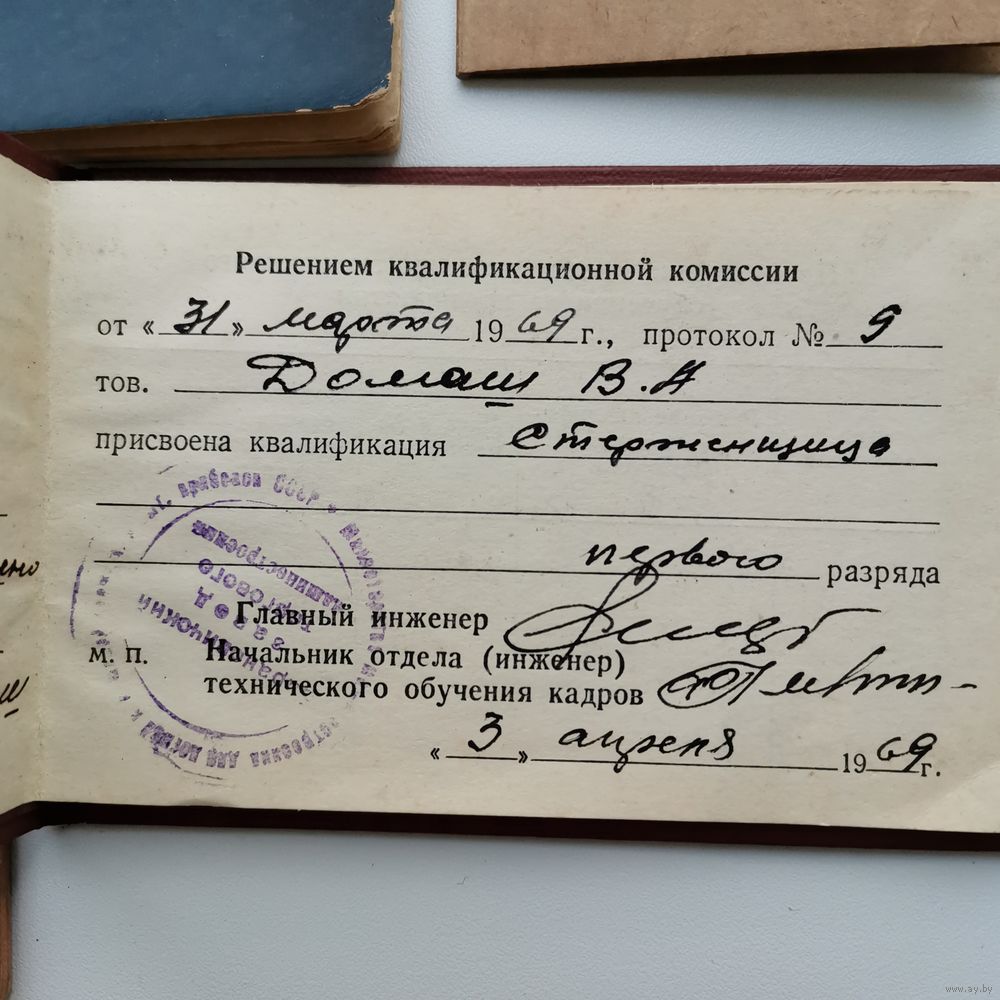 Решением квалификационной комиссии
от « 31 » марта 1969 г., протокол № 9
тов. Домаш В.А
присвоена квалификация стерженщица
первого разряда
Главный инженер
м. п. Начальник отдела (инженер)
технического обучения кадров
« 3 » апреля 1969 г.
Барановичский
завод
торгового
машиностроения
www.ay.by